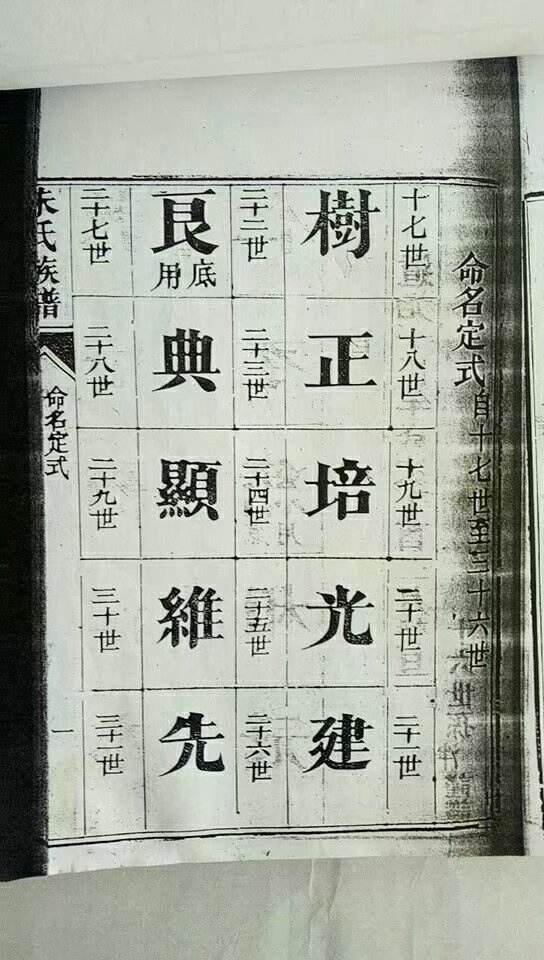 命名定式 自十七世至三十六世
十七世
十八世
十九世
二十世
二十一世
樹
正
培
光
建
二十二世
二十三世
二十四世
二十五世
二十六世
良
底用
典
顯
維
先
二十七世
二十八世
二十九世
三十世
三十一世
朱氏族譜
命名定式
一